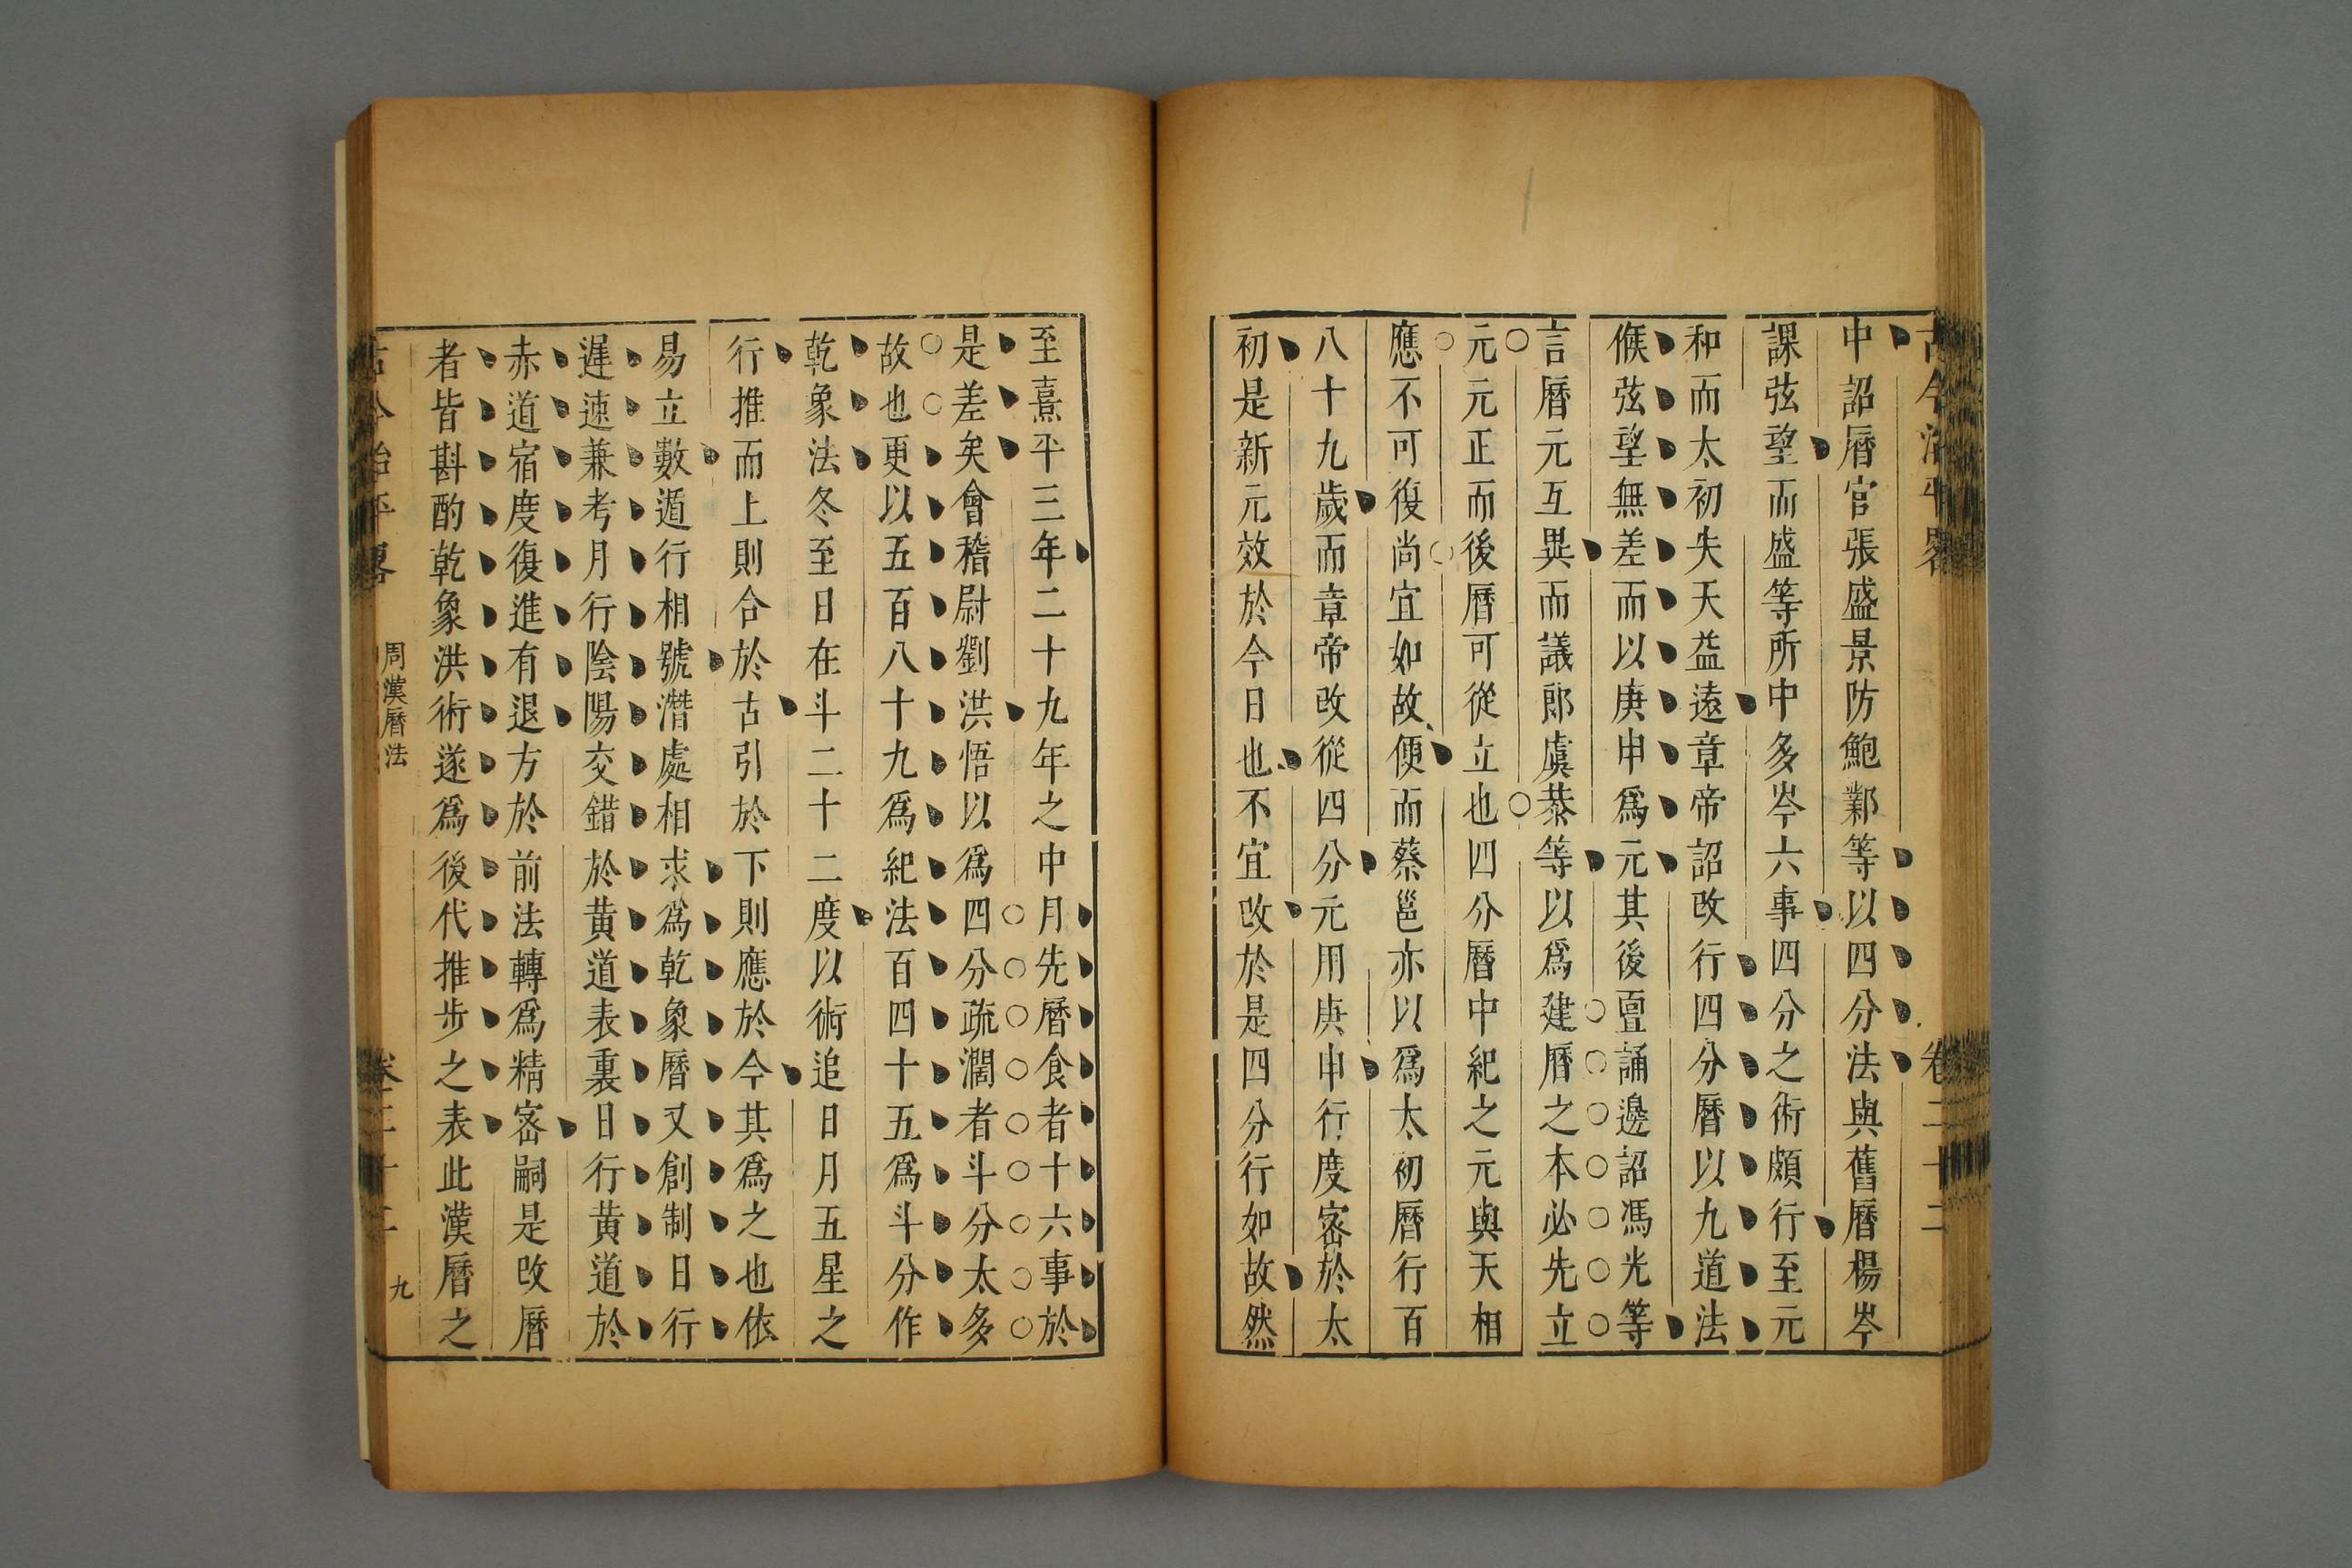 中詔曆官張盛景防鮑鄴等以四分法與舊曆楊岑
課弦望而盛等所中多岑六事四分之術頗行至元
和而太初失天益遠章帝詔改行四分曆以九道法
候弦望無差而以庚申爲元其後亶誦邊詔馮光等
言曆元互異而議郎虞恭等以爲建曆之本必先立
元元正而後曆可從立也四分曆中紀之元與天相
應不可復尚宜如故便而蔡邕亦以爲太初曆行百
八十九歲而章帝改從四分元用庚申行度密於太
初是新元效於今日也不宜改於是四分行如故然
至熹平三年二十九年之中月先曆食者十六事於
是差矣會稽尉劉洪悟以爲四分疏濶者斗分太多
故也更以五百八十九爲紀法百四十五爲斗分作
乾象法冬至日在斗二十二度以術追日月五星之
行推而上則合於古引於下則應於今其爲之也依
易立數遁行相號潛處相求爲乾象曆又創制日行
遲速兼考月行陰陽交錯於黃道表裏日行黃道於
赤道宿度復進有退方於前法轉爲精密嗣是改曆
者皆斟酌乾象洪術遂爲後代推步之表此漢曆之
周漢曆法
九